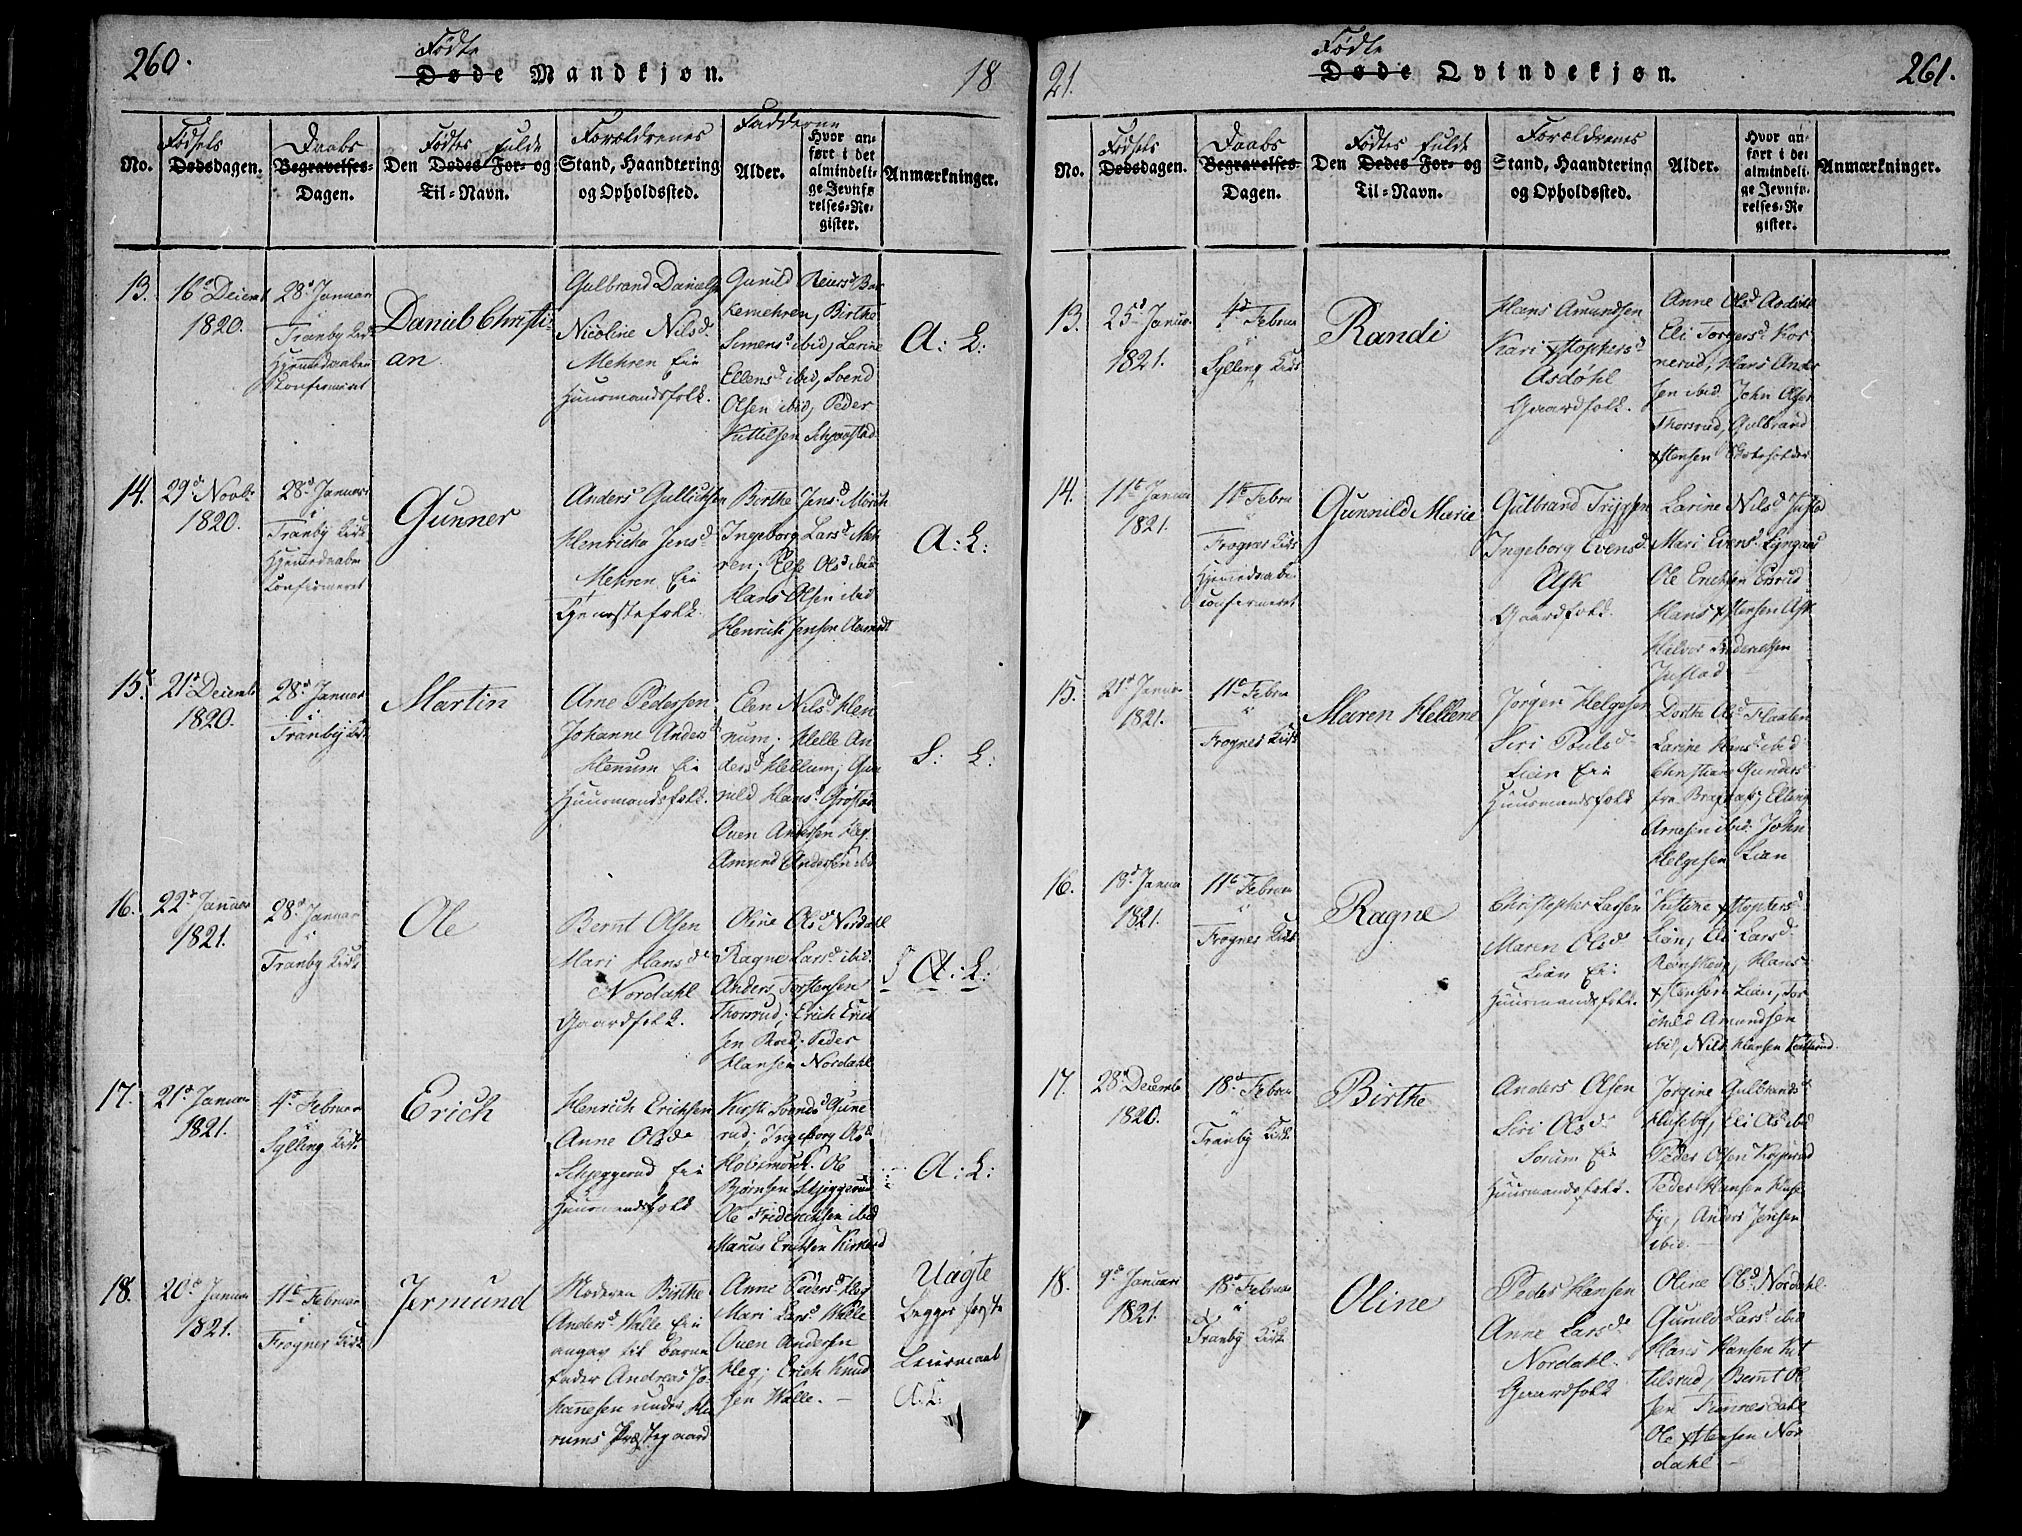 260.
Fødte
Døde Mandkjøn.
18
Fødsels
Dødsdagen.
Daabs
Begravelses-
Dagen.
No.
Fødtes fulde
Den Dødes For- og
Til-Navn.
Forældrenes
Stand, Haandtering
og Opholdssted.
Fadderne
Alder.
Hvor an-
ført i det
almindeli-
ge Jevnfø-
relses-Re-
gister.
Anmærkninger.
13.
16de Decembr
1820.
28d Januar
i
Tranby Kirk
Hjemmedaaben
Confirmeret
Daniel Christi-
an.
Gulbrand Daniels
Nicoline Nilsd.
Mehren Eie
Huusmandsfolk.
Gunild Reiersd
Mehren, Birthe
Simensd ibid, Larine
Ellensd ibid, Svend
Olsen ibid, Peder
Kittilsen
A: L:
14.
29d Novbr
1820.
28d Januar
i
Tranby Kirk
Hjemmedaaben
Confirmeret
Gunner
Anders Gullichsen
Henricha Jensd
Mehren Eie
Tjenestefolk.
Birthe Jensd
Ingeborg Larsd Meh
ren, Olsd ibid
Hans Olsen ibid
Henrich Jensen
A: L:
15.
21d Decemb
1820.
28d Januar
i
Tranby Kirk
Martin
Arne Pedersen
Johanne Andersd
Hennum Eie
Huusmandsfolk.
Elen Nilsd Hen
num, Helle An
dersd Hellum, Gun
nild Hansd Grøstad
Ouen Andersen Heg
Amund Andersen ibid
S: L:
16.
22d Januar
1821.
28d Januar
i
Tranby Kirk
Ole
Bernt Olsen
Mari Hansd
Nordahl
Gaardfolk.
Oline Olsd Nordahl
Ragne Larsd ibid.
Anders Torstensen
Thorsrud, Erich Erich
sen Roed, Peder
Hansen Nordahl
A: L:
17.
21d Januar
1821.
4d Februar
i
Sylling Kirk
Erich
Henrich Erichsen
Anne Olsd
Schjeggerud Eie
Huusmandsfolk
Kirsti Svendsd Gune
rud, Ingeborg Olsd
Holtsmark, Ole
Bjørnsen Schjeggerud
Ole Friderichsen ibid
Marius Erichsen
A: L:
18.
20d Januar
1821.
11te Februar
i
Frogner Kirk
Jermund
Moderen Birthe
Andersd Walle Eie
angav til Barne
fader Andreas Jo-
hannesen under Hu
rums Præstegaard
Anne Pedersd Heg
Mari Larsd Walle
Ouen Andersen
Heg, Erich Knud
sen Walle.
Uægte
Begges første
Leiermaal
A: L:
21.
Fødte
Døde Qvindekjøn.
261.
No.
Fødsels
Dødsdagen.
Daabs
Begravelses
Dagen.
Fødtes fulde
Den Dødes For- og
Til-Navn.
Forældrenes
Stand, Haandtering
og Opholdssted.
Alder.
Hvor an-
ført i det
almindeli-
ge Jevnfø-
relses-Re
gister.
Anmærkninger.
13.
25d Januar
1821.
4d Februar
i
Sylling Kirk
Randi
Hans Amundsen
Kari Xstophersd
Asdøhl
Gaardfolk.
Anne Olsd Asdøhl
Eli Torgersd Kor
nerud, Hans Ander
sen ibid, John Olsen
Thorsrud, Gulbrand
Xstensen
14.
11te Januar
1821.
11te Februar
i
Frogner Kirk
Hjemmedaaben
Confirmeret
Gunnild Marie
Gulbrand Trygsen
Ingeborg Evensd
Ask
Gaardfolk.
Larine Nilsd Justad
Mari Evensd Lyngaas
Ole Erichsen Enrud
Hans Xstensen Ask
Halvor Friderichsen
Justad
15.
21d Januar
1821.
11te Februar
i
Frogner Kirk
Maren Hellene
Jørgen Helgesen
Siri Poulsd
Lien Eie
Huusmandsfolk
Dorthe Olsd Flaaten
Larine Hansd ibid
Christiane Gundersd
fra Bragnæs, Elling
Arnesen ibid, John
Helgesen Lian
16.
18d Januar
1821.
11te Februar
i
Frogner Kirk
Ragne
Christopher Larsen
Maren Olsd
Lian Eie
Huusmandsfolk.
Kittine Xstophersd
Lian, Eli Larsd
Renskoug, Hans
Xstensen Lian, Tor
child Amundsen
ibid, Nils Hansen
17.
28d Decemb
1820.
18d Februar
i
Tranby Kirk
Birthe
Anders Olsen
Siri Olsd
Sørum Eie
Huusmandsfolk.
Jorgine Gulbrandsd
Huseby, Eli Olsd ibid
Peder Olsen
Peder Hansen Huse
bye, Anders Jensen
ibid.
18.
9d Januari
1821.
18d Februar
i
Tranby Kirk
Oline
Peder Hansen
Anne Larsd
Nordahl.
Gaardfolk
Oline Olsd Nordahl.
Gunild Larsd ibid
Hans Hansen Kit
tilsrud, Bernt Ol
sen Nordahl
Ole Xstensen Nor
dahl